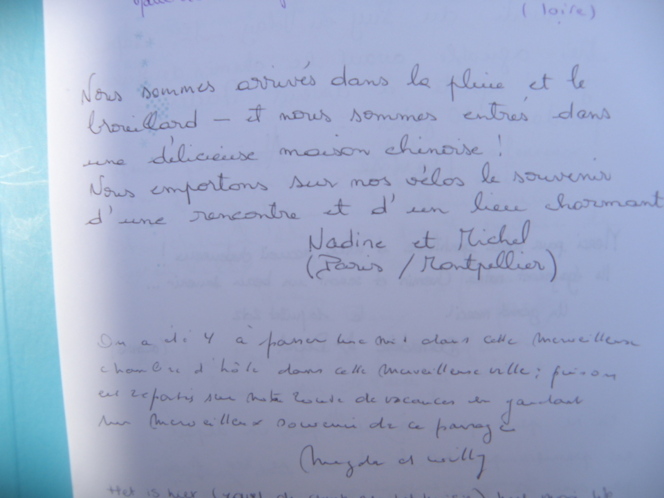 (Loire)
Nous sommes arrivés dans la pluie et le
brouillard - et nous sommes entrés dans
une délicieuse maison chinoise !
Nous emportons sur nos vélos le souvenir
d'une rencontre et d'un lieu charmant
Nadine et Michel
(Paris / Montpellier)
On a à passer une nuit dans cette merveilleuse
chambre d'hôte dans cette merveilleuse ville ; puis on
est repartis sur notre route de vacances en gardant
un merveilleux souvenir de ce passage
Magda et Willy
Het is hier